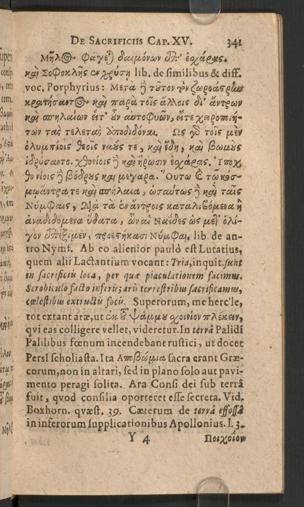 DE SACRIFICIIS CAP. XV. 341
Μῆλ@- Φαγεῖ) δαιμόνων ἐπ' ἐσχάραις.
καὶ Σοφοκλῆς ἐν χρύσῃ lib. de similibus & diff.
voc. Porphyrius: Μετὰ ἢ τῦτον τ̀ ζωροάστρlω
κρατήσαντ@- καὶ παρὰ τοῖς ἄλλοις δι' ἄντρων
καὶ σπηλαίων εἴτ' ἓν αὐτοφυῶν, εἴτε χειροποιή-
των τὰς τελετὰς ἀποδιδόναι. Ὡς γδ τοῖς μὲν
ὀλυμπίοις θεοῖς ναύς τε, καὶ ἕδη, καὶ βωμοὺς
ἱδρύσαντο. χθονίοις ἢ καὶ ἥρωσιν ἐσχάρας. Ὑποχ-
θονίοις ἢ βόθρυς καὶ μέγαρα. Οὕτω
καὶ σπήλαια, ὡσαύτως ἢ καὶ ταῖς
Νύμφαις, ἐν ἄντροις καταλιβόμενα ἢ
ἀναδιδόμενα ὕδατα, ὧναἱ Ναίδες ὡς μεθ' ὀλί-
γον ἐπέξιμεν, προεστήκασι Νύμφαι, lib. de an-
tro Nymf. Ab eo alienior paulò est Lutatius,
quem alii Lactantium vocant: Tria, inquit, sunt
in sacrificiis loca, per quæ piaculationem facimus.
Scrobiculo facto inferis; arâ terrestribus sacrificamus,
cælestibus extructis focis. Superorum, me herc'le,
tot extant aræ, ut ἐκ ὃ ψάμμυ σχοινίον πλέκειν,
qvi eas colligere vellet, videretur. In terrâ Palici
Palilibus fœnum incendebant rustici, ut docet
Persî scholiasta. Ita Αποβώμια sacra erant Græ-
corum, non in altari, sed in plano solo aut pavi-
mento peragi solita. Ara Consi dei sub terrâ
fuit, qvod consilia oporteret esse secreta. Vid.
Boxhorn. qvæst. 39. Cæterum de terrâ effossâ
in inferorum supplicationibus Apollonius. l. 3.
Y 4 Ποιχοίον